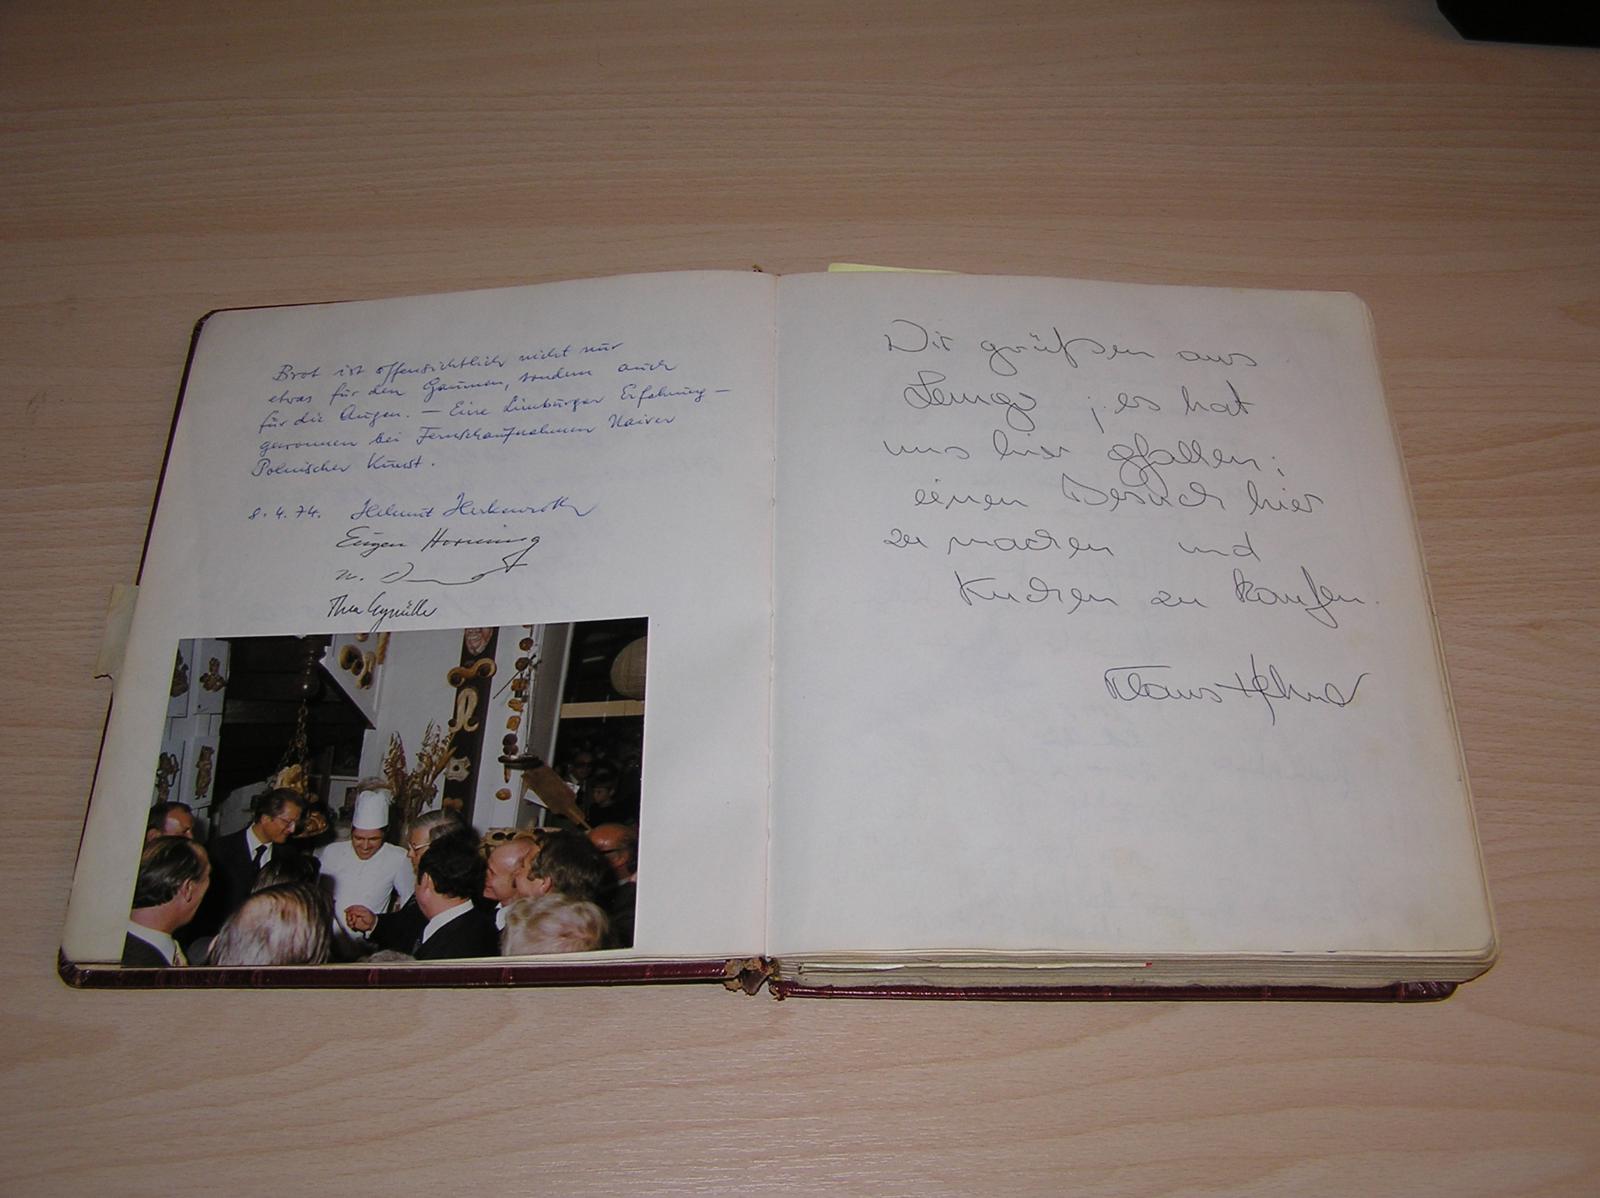 Brot ist offensichtlich nicht nur
etwas für den Gaumen, sondern auch
für die Augen. — Eine Limburger Erfahrung —
gewonnen bei Fernsehaufnahmen Naiver
Polnischer Kunst.
8.4.74. Helmut
Eugen Hornung
Thea
Wir grüßen aus
Lemgo ; es hat
uns hier gfallen;
einen Besuch hier
zu machen und
Kuchen zu kaufen.
Klaus